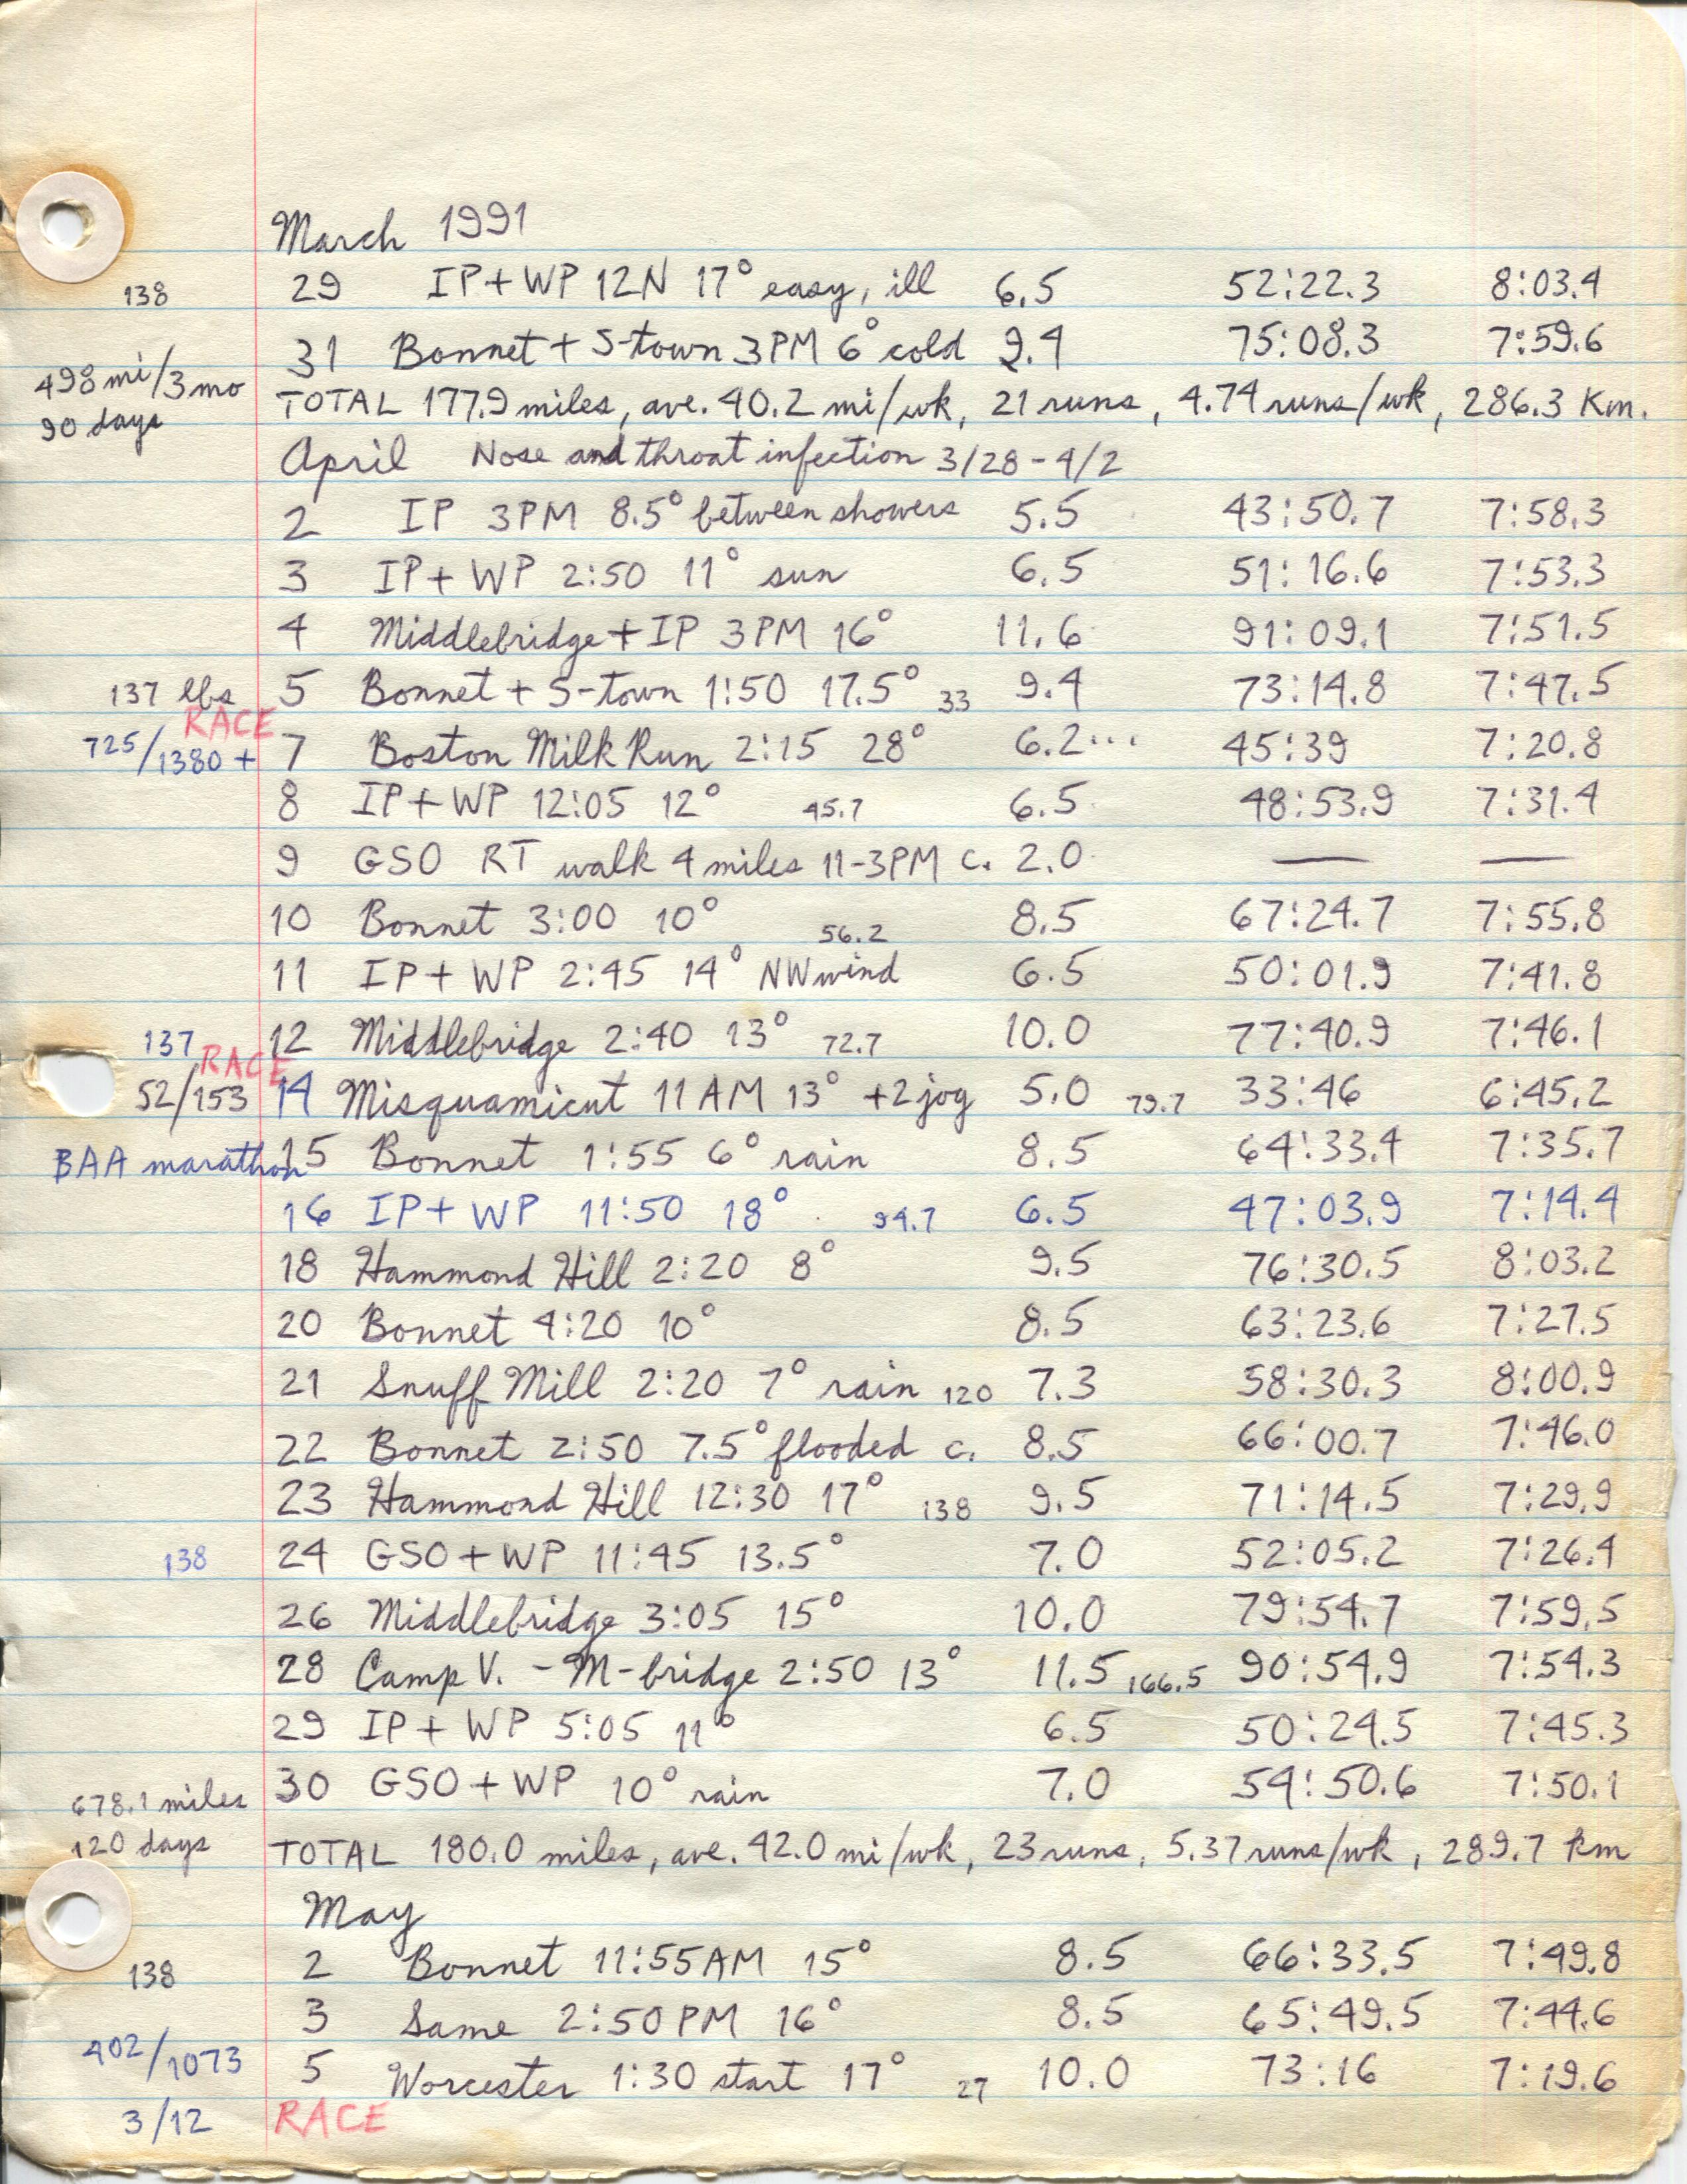 March 1991
138 29 IP+WP 12N 17° easy, ill 6.5 52:22.3 8:03.4
31 Bonnet + S-town 3PM 6° cold 9.4 75:08.3 7:59.6
498 mi/3mo
90 days
TOTAL 177.9 miles, ave. 40.2 mi/wk, 21 runs, 4.74 runs/wk, 286.3 Km.
April Nose and throat infection 3/28-4/2
2 IP 3PM 8.5° between showers 5.5 43:50.7 7:58.3
3 IP+WP 2:50 11° sun 6.5 51:16.6 7:53.3
4 Middlebridge + IP 3PM 16° 11.6 91:09.1 7:51.5
137 lbs 5 Bonnet + S-town 1:50 17.5° 33 9.4 73:14.8 7:47.5
RACE
725/1380 + 7 Boston Milk Run 2:15 28° 6.2... 45:39 7:20.8
8 IP+WP 12:05 12° 45.7 6.5 48:53.9 7:31.4
9 GSO RT walk 4 miles 11-3PM c. 2.0 — —
10 Bonnet 3:00 10° 56.2 8.5 67:24.7 7:55.8
11 IP+WP 2:45 14° NW wind 6.5 50:01.9 7:41.8
137 12 Middlebridge 2:40 13° 72.7 10.0 77:40.9 7:46.1
RACE
52/153 14 Misquamicut 11AM 13° +2 jog 5.0 79.7 33:46 6:45.2
BAA marathon 15 Bonnet 1:55 6° rain 8.5 64:33.4 7:35.7
16 IP+WP 11:50 18° 94.7 6.5 47:03.9 7:14.4
18 Hammond Hill 2:20 8° 9.5 76:30.5 8:03.2
20 Bonnet 4:20 10° 8.5 63:23.6 7:27.5
21 Snuff Mill 2:20 7° rain 120 7.3 58:30.3 8:00.9
22 Bonnet 2:50 7.5° flooded c. 8.5 66:00.7 7:46.0
23 Hammond Hill 12:30 17° 138 9.5 71:14.5 7:29.9
138 24 GSO+WP 11:45 13.5° 7.0 52:05.2 7:26.4
26 Middlebridge 3:05 15° 10.0 79:54.7 7:59.5
28 Camp V. - M-bridge 2:50 13° 11.5 166.5 90:54.9 7:54.3
29 IP+WP 5:05 11° 6.5 50:24.5 7:45.3
30 GSO+WP 10° rain 7.0 54:50.6 7:50.1
678.1 miles
120 days
TOTAL 180.0 miles, ave. 42.0 mi/wk, 23 runs, 5.37 runs/wk, 289.7 km
May
138 2 Bonnet 11:55AM 15° 8.5 66:33.5 7:49.8
3 Same 2:50PM 16° 8.5 65:49.5 7:44.6
402/1073 5 Worcester 1:30 start 17° 27 10.0 73:16 7:19.6
3/12 RACE